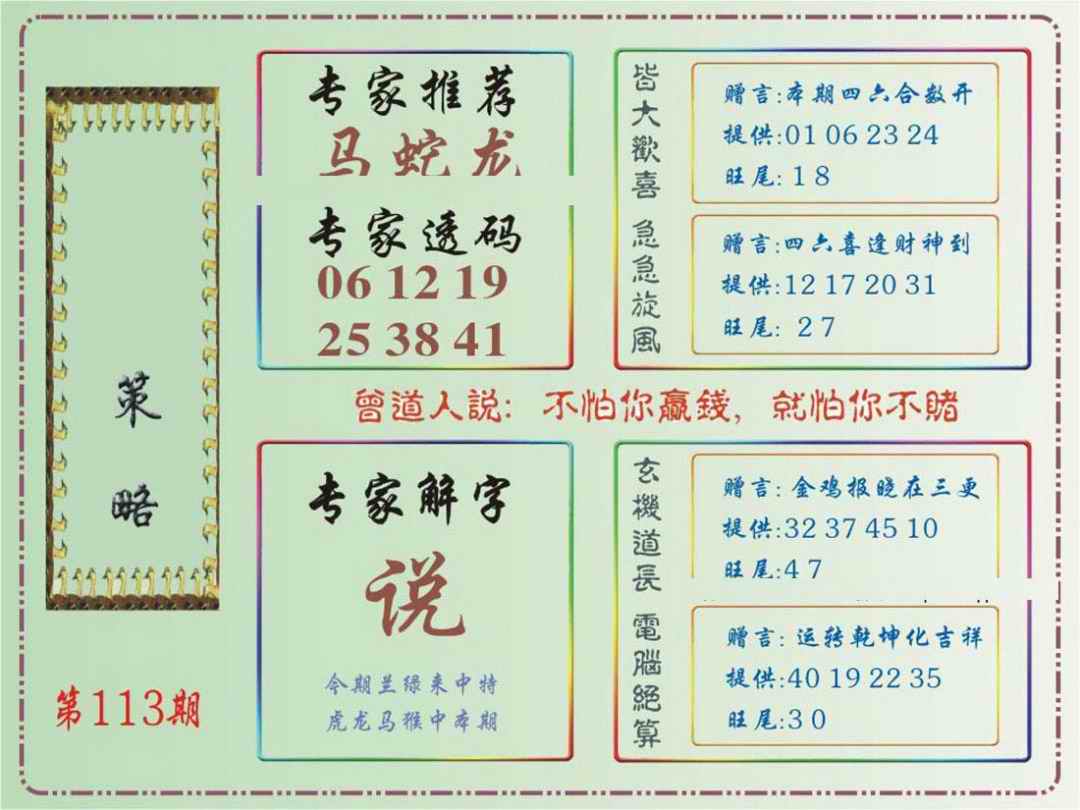 策略
第113期
专家推荐
马蛇龙
专家透码
06 12 19
25 38 41
皆大歡喜
赠言:本期四六合数开
提供:01 06 23 24
旺尾: 1 8
急急旋風
赠言:四六喜逢财神到
提供:12 17 20 31
旺尾: 2 7
曾道人説: 不怕你贏錢, 就怕你不賭
专家解字
说
令期兰绿来中特
虎龙马猴中本期
玄機道長
赠言: 金鸡报晓在三更
提供:32 37 45 10
旺尾:4 7
電腦絕算
赠言: 运转乾坤化吉祥
提供:40 19 22 35
旺尾:3 0